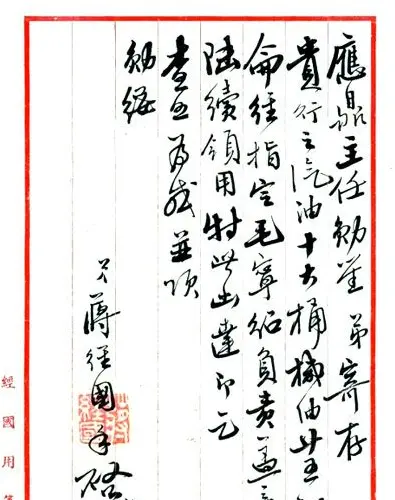 應鼎主任勛鑒 弟寄存
貴行之汽油十大桶機油廿五
侖經指定毛寧紹負責蓋
陸續領用特此函達即乞
查照為感並頌
勛綏
弟蔣經國手啓
經國用箋